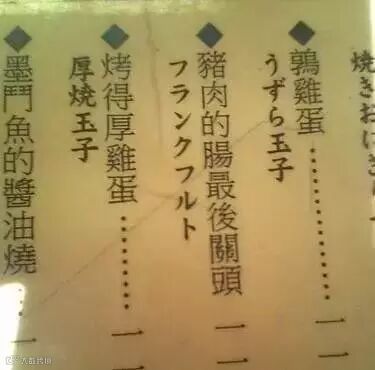 焼きおにぎり
◆鶉雞蛋…………一一
うずら玉子
◆豬肉的腸最後關頭一一
フランクフルト
◆烤得厚雞蛋…………一一
厚焼玉子
◆墨鬥魚的醬油燒……一一